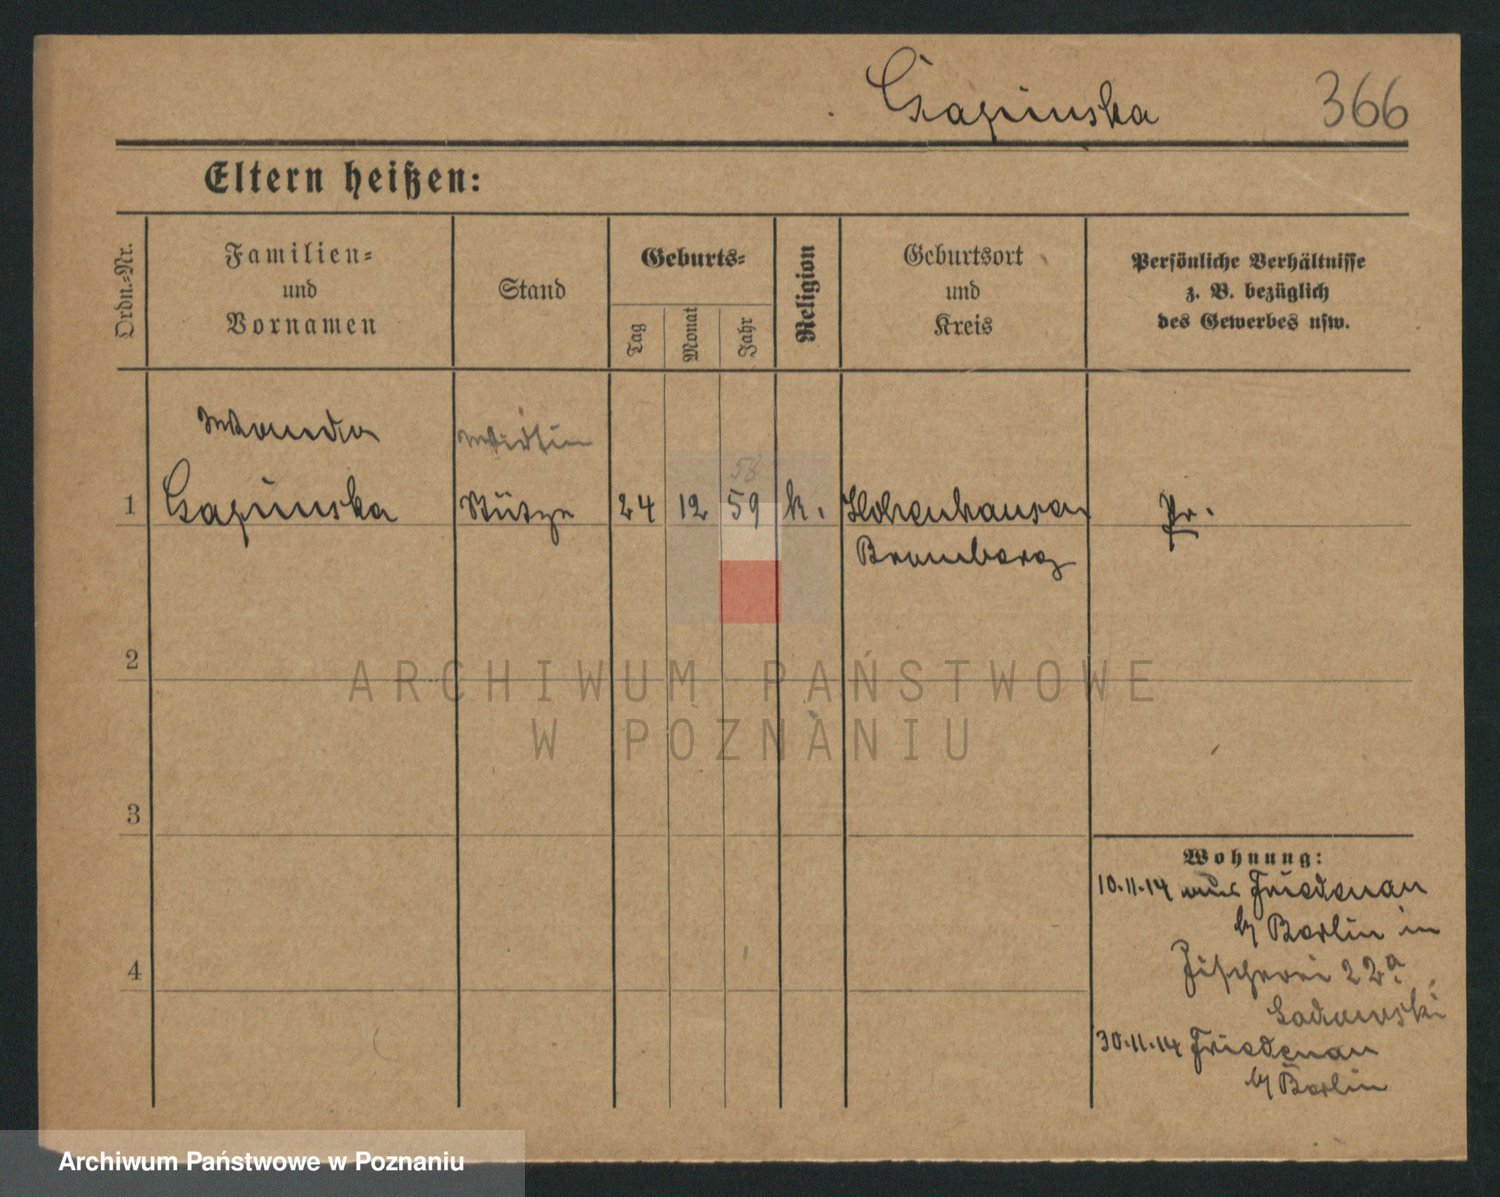 Czapinska 366
Eltern heißen:
Ordn.-Nr.
Familien-
und
Vornamen
Stand
Geburts-
Tag
Monat
Jahr
Religion
Geburtsort
und
Kreis
Persönliche Verhältnisse
z. B. bezüglich
des Gewerbes usw.
Wanda
58
1 Czapinska Stütze 24 12 59 k. Hohenhausen Pr.
Bromberg
2
ARCHIWUM PAŃSTWOWE
W POZNANIU
3
Wohnung:
10.11.14 aus Friedenau
b/ Berlin in
4
Fischerei 22a.
30.11.14 Friedenau
b/ Berlin
Archiwum Państwowe w Poznaniu